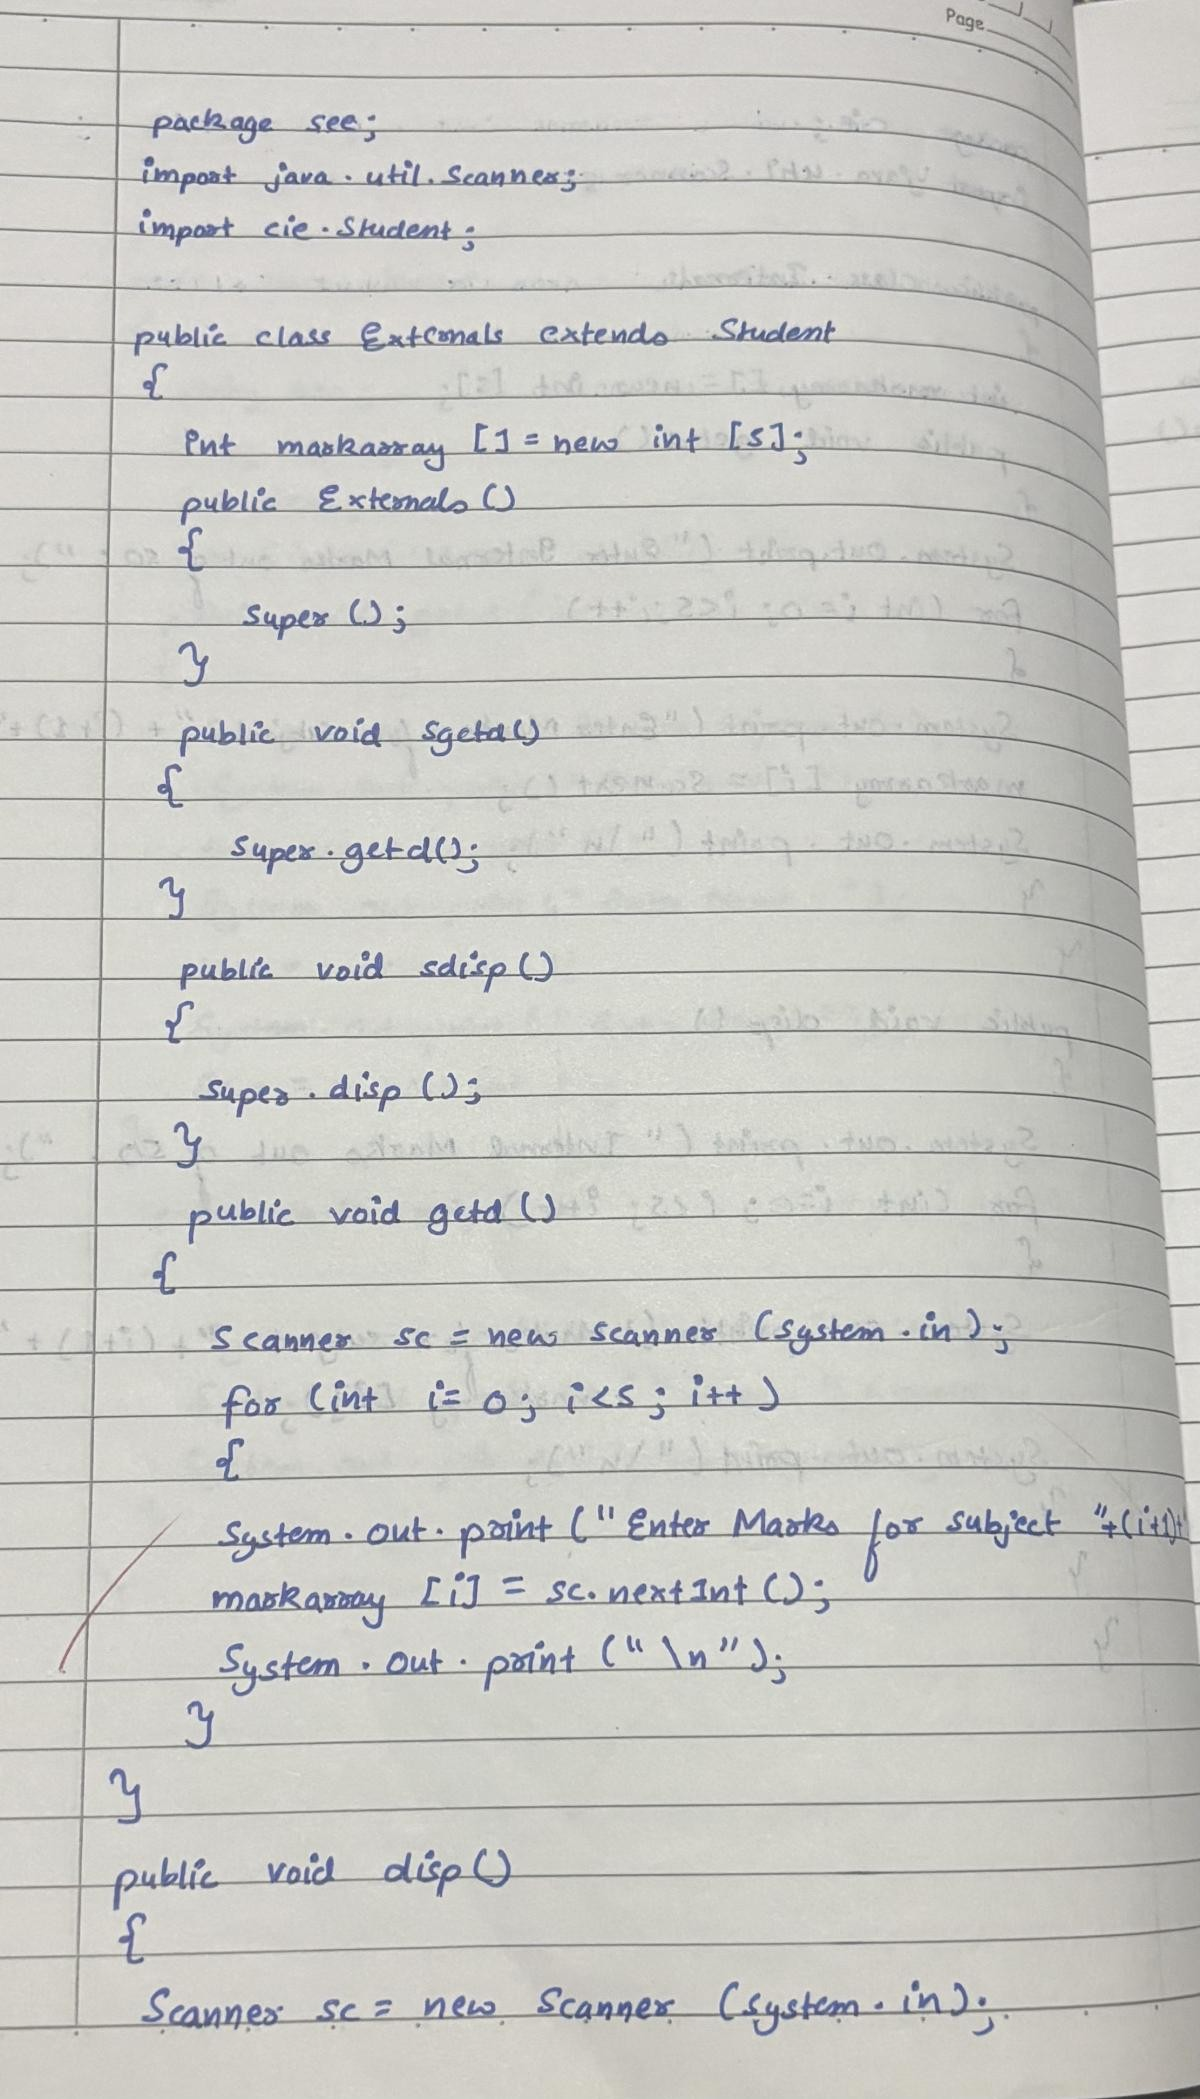 Page
package see;
import java.util.Scanner;
import cie.Student;
public class Externals extends Student
{
int markarray []=new int [5];
public Externals()
{
super();
}
public void sgetd()
{
super.getd();
}
public void sdisp()
{
super.disp();
}
public void getd()
{
Scanner sc = new scanner (system.in);
for (int i= 0; i<5; i++)
{
System.out.print ("Enter Marks for subject "+(i+1)+
markarray [i] = sc.nextInt();
System.out.print ("\n");
}
}
public void disp()
{
Scanner sc = new Scanner (system.in);